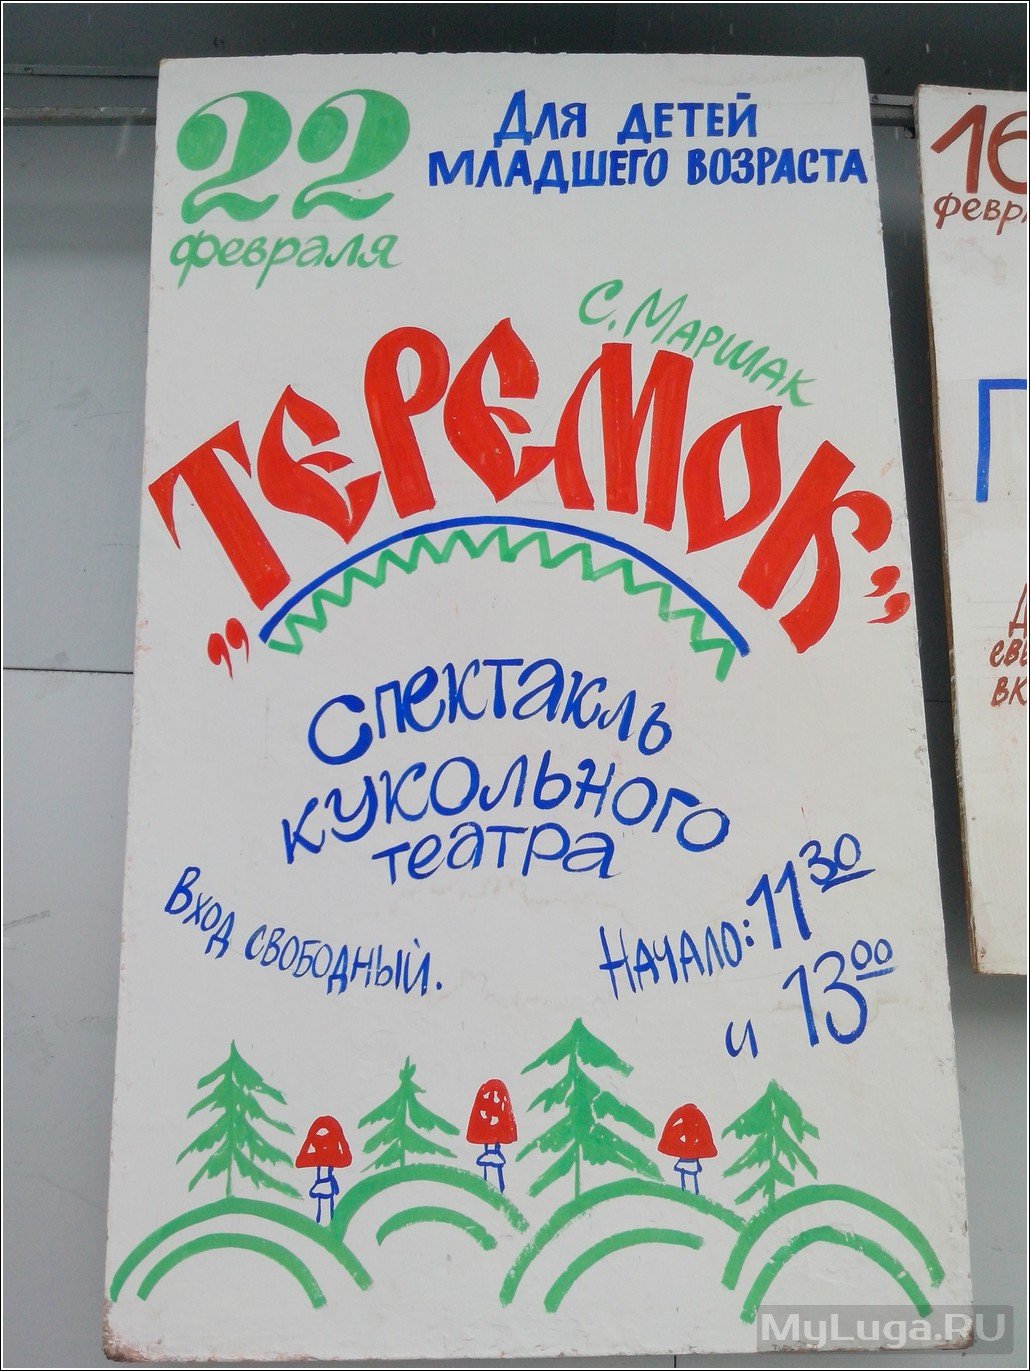 22
февраля
Для детей
младшего возраста
С. Маршак
"Теремок"
Спектакль
кукольного
театра
Вход свободный.
Начало: 11 30
и 13 00
16
П
MyLuga.RU